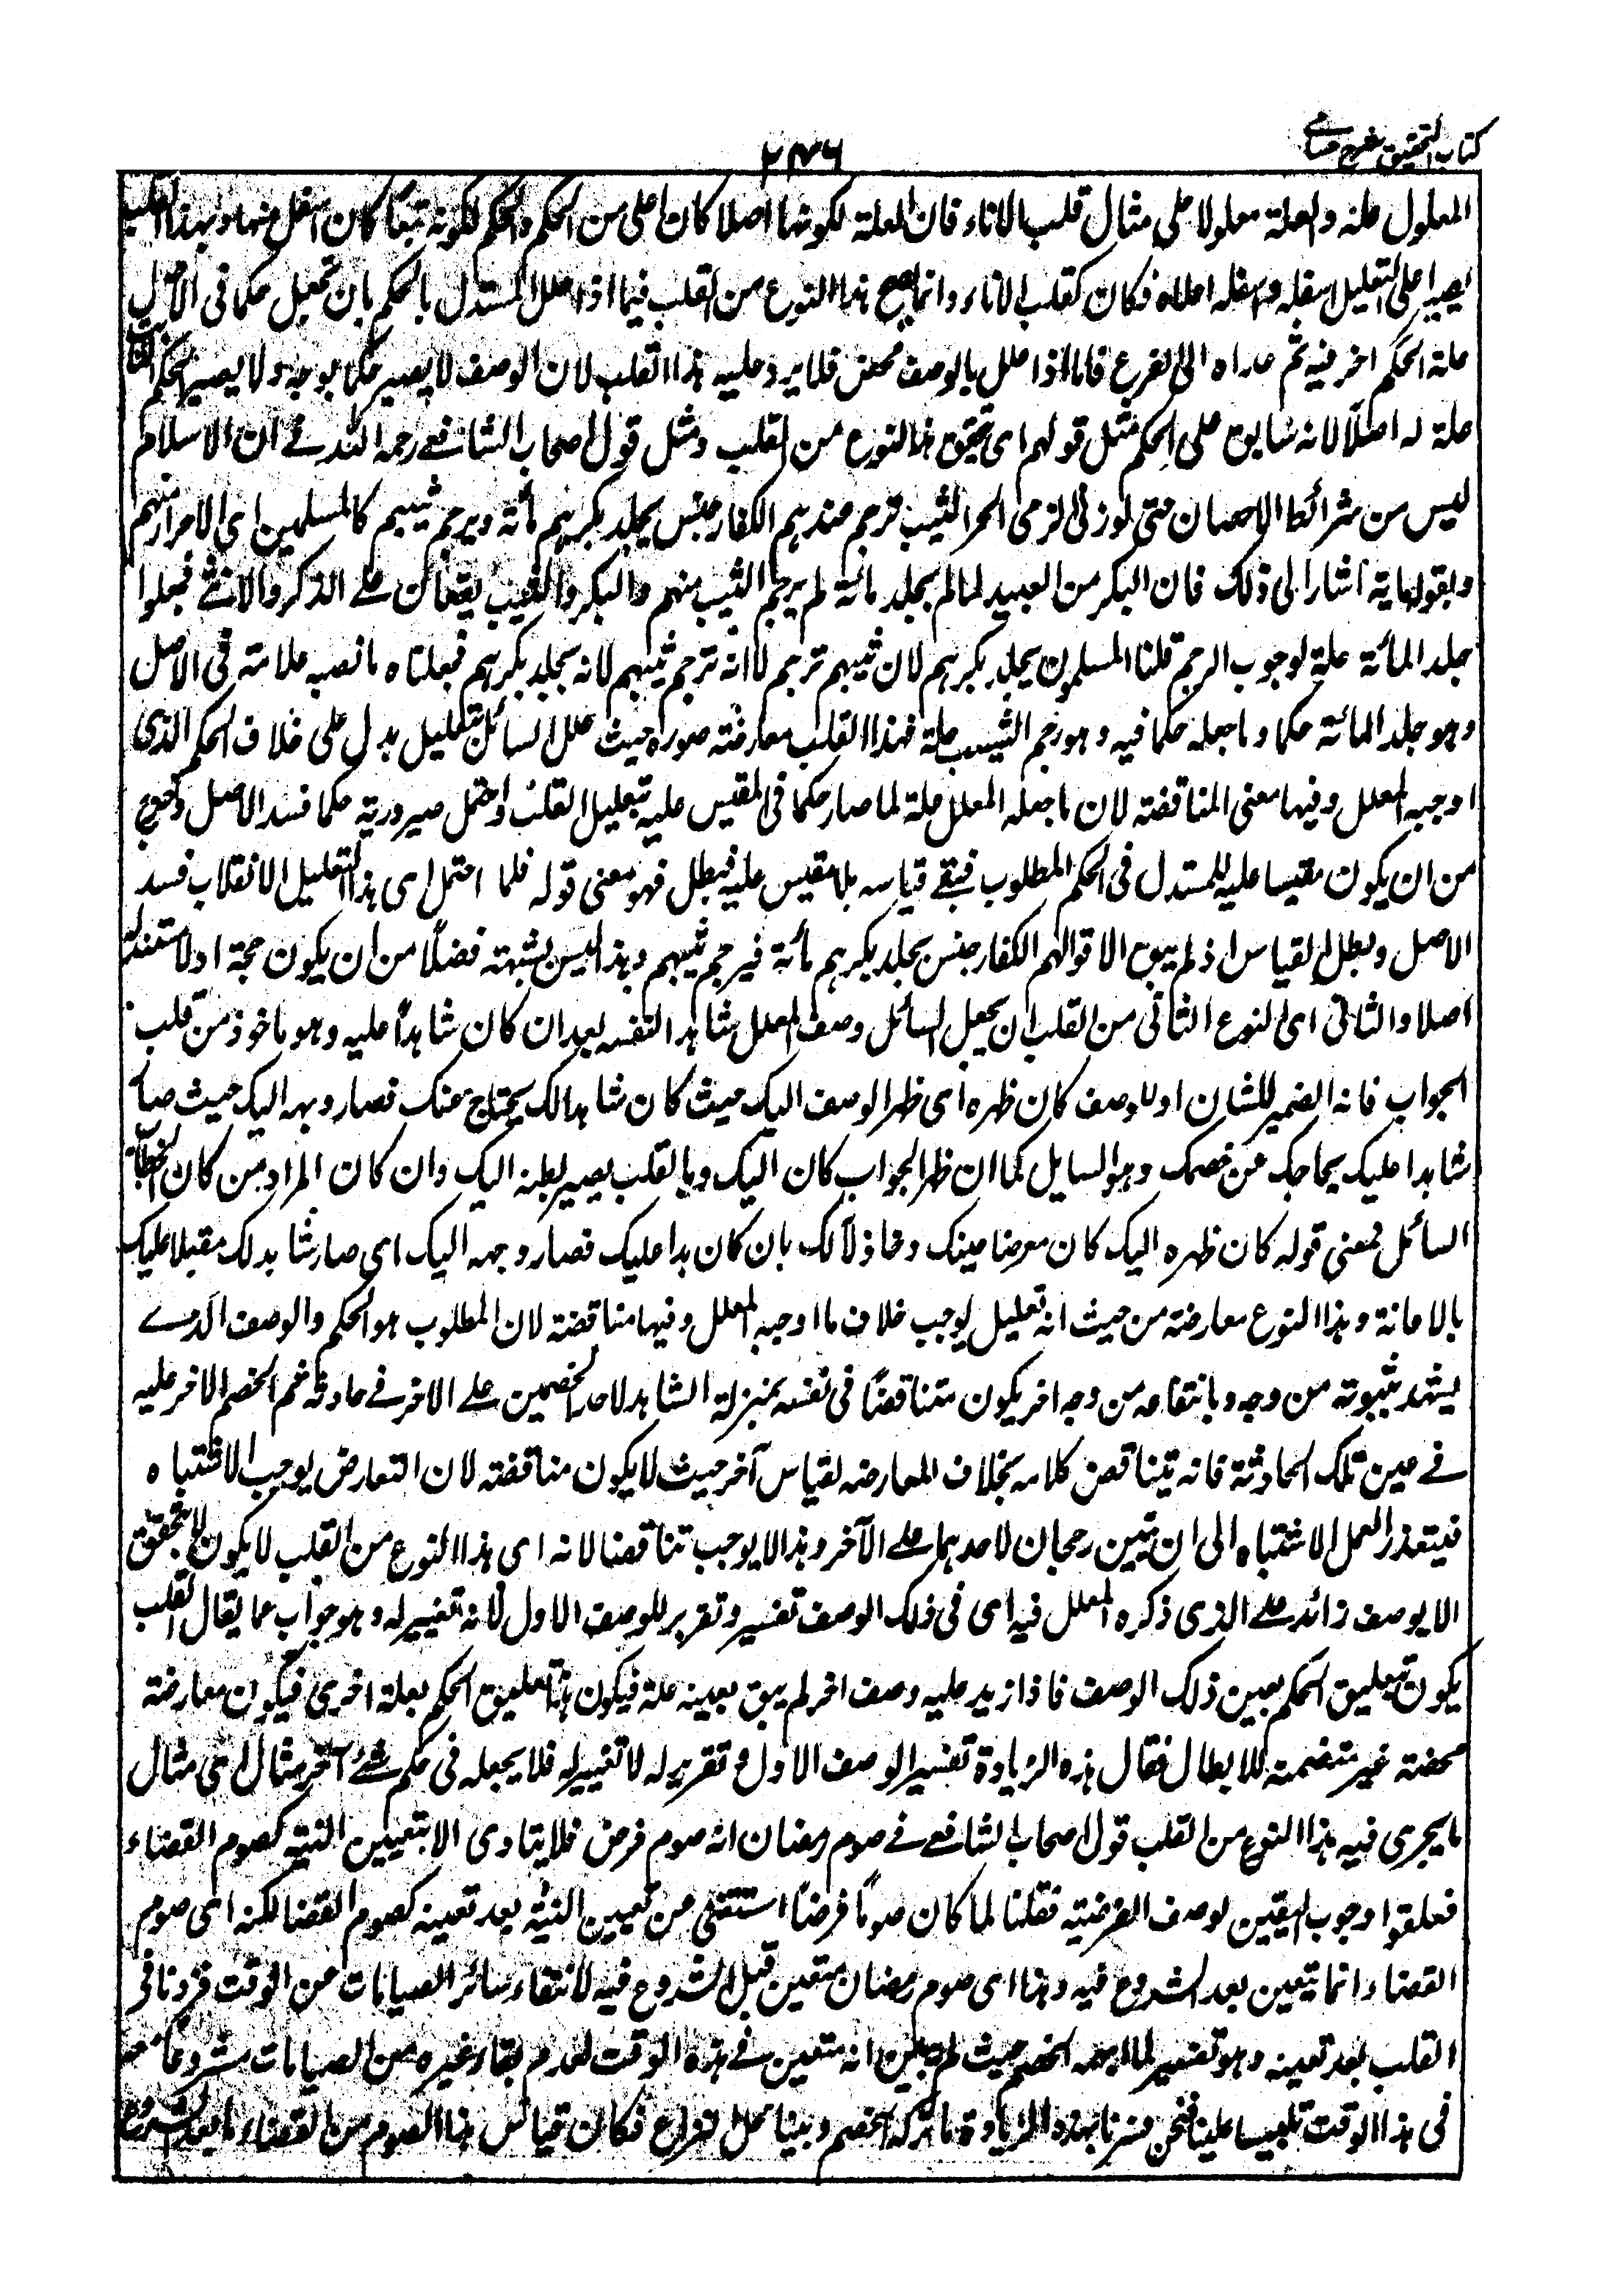 كتاب التحقيق شرح حسامي
٢٣٦
المعلول علة والعلة معلولا على مثال قلب الاناء فان العلة لكونها اصلا كان اعلى من الحكم والحكم لكونه تبعا كان اسفل منها وبهذا القلب
يصير اعلى التعليل اسفله واسفله اعلاه فكان كقلب الاناء وانما يصح هذا النوع من القلب فيما اذا علل المستدل بالحكم بان تجعل حكما في الاصل
علة لحكم اخر فيه ثم عداه الى الفرع فاما اذا علل بالوصف محض فلا يرد عليه هذا القلب لان الوصف لا يصير حكما بوجه ولا يصير الحكم الثابت
علة له اصلا لانه سابق على الحكم مثل قولهم اى تحقق هذا النوع من القلب مثل قول اصحاب الشافعے رحمه الله في ان الاسلام
ليس من شرائط الاحصان حتى لو زنى الذمى الحر الثيب ترجم عندهم الكفار جنس يجلد بكرهم مائة ويرجم ثيبهم كالمسلمين اى الاحرار منهم
وبقوله مائة اشار الى ذلك فان البكر من العبيد لما لم يجلد مائة لم يرجم الثيب منهم والبكر والثيب يقعان علے الذكر والانثے فجعلوا
جلد المائة علة لوجوب الرجم قلنا المسلمون يجلد بكرهم لان ثيبهم ترجم لا انه ترجم ثيبهم لانه يجلد بكرهم فجعلنا ه ما نصبه علامة في الاصل
وهو جلد المائة حكما وما جعله حكما فيه وهو رجم الثيب علة فهذا القلب معارضة صورة حيث علل السائل بتعليل يدل على خلاف الحكم الذى
اوجبه المعلل وفيها معنى المناقضة لان ما جعله المعلل علة لما صار حكما في المقيس عليه بتعليل القلب واحتمل صيرورته حكما فسد الاصل وخرج
من ان يكون مقيسا عليه للمستدل في الحكم المطلوب فبقے قياسه بلا مقيس عليه فبطل فهو معنى قوله فلما احتمل اى هذا التعليل الانقلاب فسد
الاصل وبطل القياس اذ لم يبق الا قولهم الكفار جنس يجلد بكرهم مائة فيرجم ثيبهم وهذا ليس بشبهة فضلا من ان يكون حجة
اصلا والثانى اى النوع الثانى من القلب ان يجعل السائل وصف المعلل شاهدا لنفسه بعد ان كان شاهدا عليه وهو ماخوذ من قلب
الجراب فانه الضمير للشان او للوصف كان ظهره اى ظهر الوصف اليك حيث كان شاهدا لك يحتاج عنك فصار وجهه اليك حيث صار
شاهدا عليك يحاجك عن خصمك وهو السايل كما ان ظهر الجراب كان اليك وبالقلب يصير بطنه اليك وان كان المراد من كان الخطاب
السائل فمعنى قوله كان ظهره اليك كان معرضا عنك وخاذلا لك بان كان شاهدا عليك فصار وجهه اليك اى صار شاهد لك مقبلا عليك
بالاعانة وهذا النوع معارضة من حيث انه تعليل يوجب خلاف ما اوجبه المعلل وفيها مناقضة لان المطلوب هو الحكم والوصف الذے
يشهد بثبوته من وجه وبانتفاءه من وجه اخر يكون متناقضا في نفسه بمنزلة الشاهد لاحد الخصمين علے الاخر فے حادثة ثم الخصم الاخر عليه
فے عين تلك الحادثة فانه يتناقض كلامه بخلاف المعارضه لقياس آخر حيث لا يكون مناقضة لان التعارض يوجب الاشتباه
فيتعذر العمل الاشتباه الى ان تبين رجحان لاحدهما علے الآخر وهذا لا يوجب تناقضا لانه اى هذا النوع من القلب لا يكون لا يتحقق
الا بوصف زائد علے الذى ذكره المعلل فيه اى فى ذلك الوصف تفسير وتقرير للوصف الاول لا تغيير له وهو جواب عما يقال القلب
يكون تعليق الحكم بعين ذلك الوصف فاذا زيد عليه وصف اخر لم يبق بعينه علة فيكون هذا تعليق الحكم بعلة اخرى فيكون معارضة
محضة غير متضمنة للابطال فقال هذه الزيادة تفسير الوصف الاول وتقرير له لا تغيير له فلا يجعله فى حكم شئے آخر مثال اى مثال
ما يجرى فيه هذا النوع من القلب قول اصحاب الشافعے فے صوم رمضان انه صوم فرض فلا يتادى الا بتعيين النية كصوم القضاء
فعلقوا وجوب التعيين لوصف الفرضية فقلنا لما كان صوما فرضا استغنى من تعيين النية بعد تعينه كصوم القضا لكنه اى صوم
القضاء انما يتعين بعد الشروع فيه وهذا اى صوم رمضان متعين قبل الشروع فيه لانتفاء سائر الصيامات من الوقت فزدنا فى
القلب بعد تعينه وهو تفسير لما ابهمه الخصم حيث لم يبين انه متعين فے هذه الوقت لعدم بقاء غيره من الصيامات مشروعا
فى هذا الوقت تلبيسا علينا فنحن فسرنا بهذه الزيادة ما تركه الخصم وبينا محل النزاع فكان قياس هذا الصوم من القضاء ما بعد الشروع